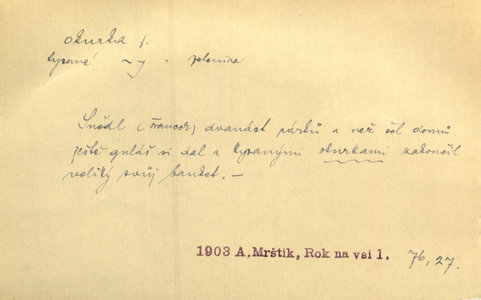 okurka f.
kysané ~y : zelenina
Snědl (Francek) dvanáct párků a než šel domů
ještě guláš si dal a kysanými okurkami zakončil
veliký svůj banket. —
1903 A. Mrštík, Rok na vsi 1. 76, 27.